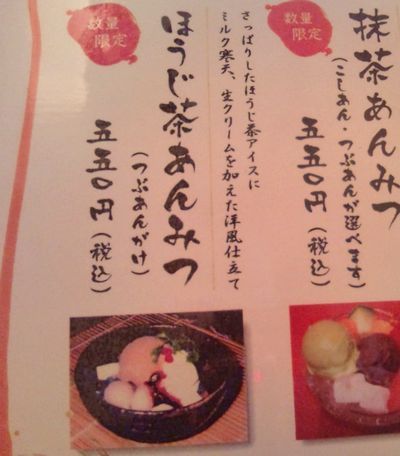 数量
限定
抹茶あんみつ
(こしあん・つぶあんが選べます)
五五〇円(税込)
さっぱりしたほうじ茶アイスに
ミルク寒天、生クリームを加えた洋風仕立て
数量
限定
ほうじ茶あんみつ
(つぶあんがけ)
五五〇円(税込)